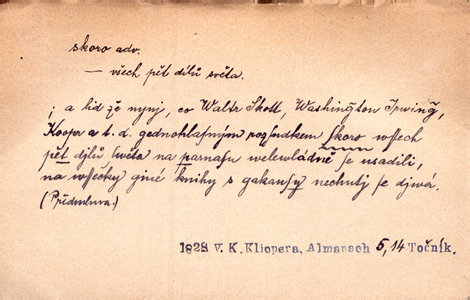 skoro adv.
— všech pět dílů světa.
; a lid že nynj, co Waltr Skott, Washington Irwing,
Kooper a t. d. gednohlasným rozsudkem skoro wssech
pět djlů swěta na parnasu welewládně se usadili,
na wssecky giné knihy s gakausy nechutj se djwá.
(Předmluva.)
1828 V. K. Klicpera, Almanach 5, 14 Točník.